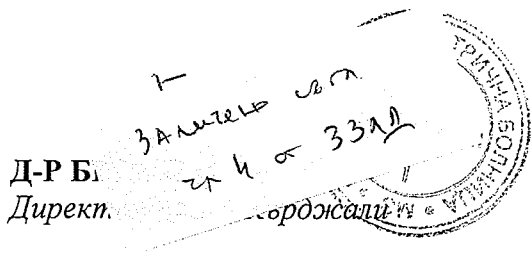 Заличено съгл.
чл 4 от ЗЗЛД
Д-Р Б
Директ ърджали
ТРИЧНА БОЛНИЦА * М